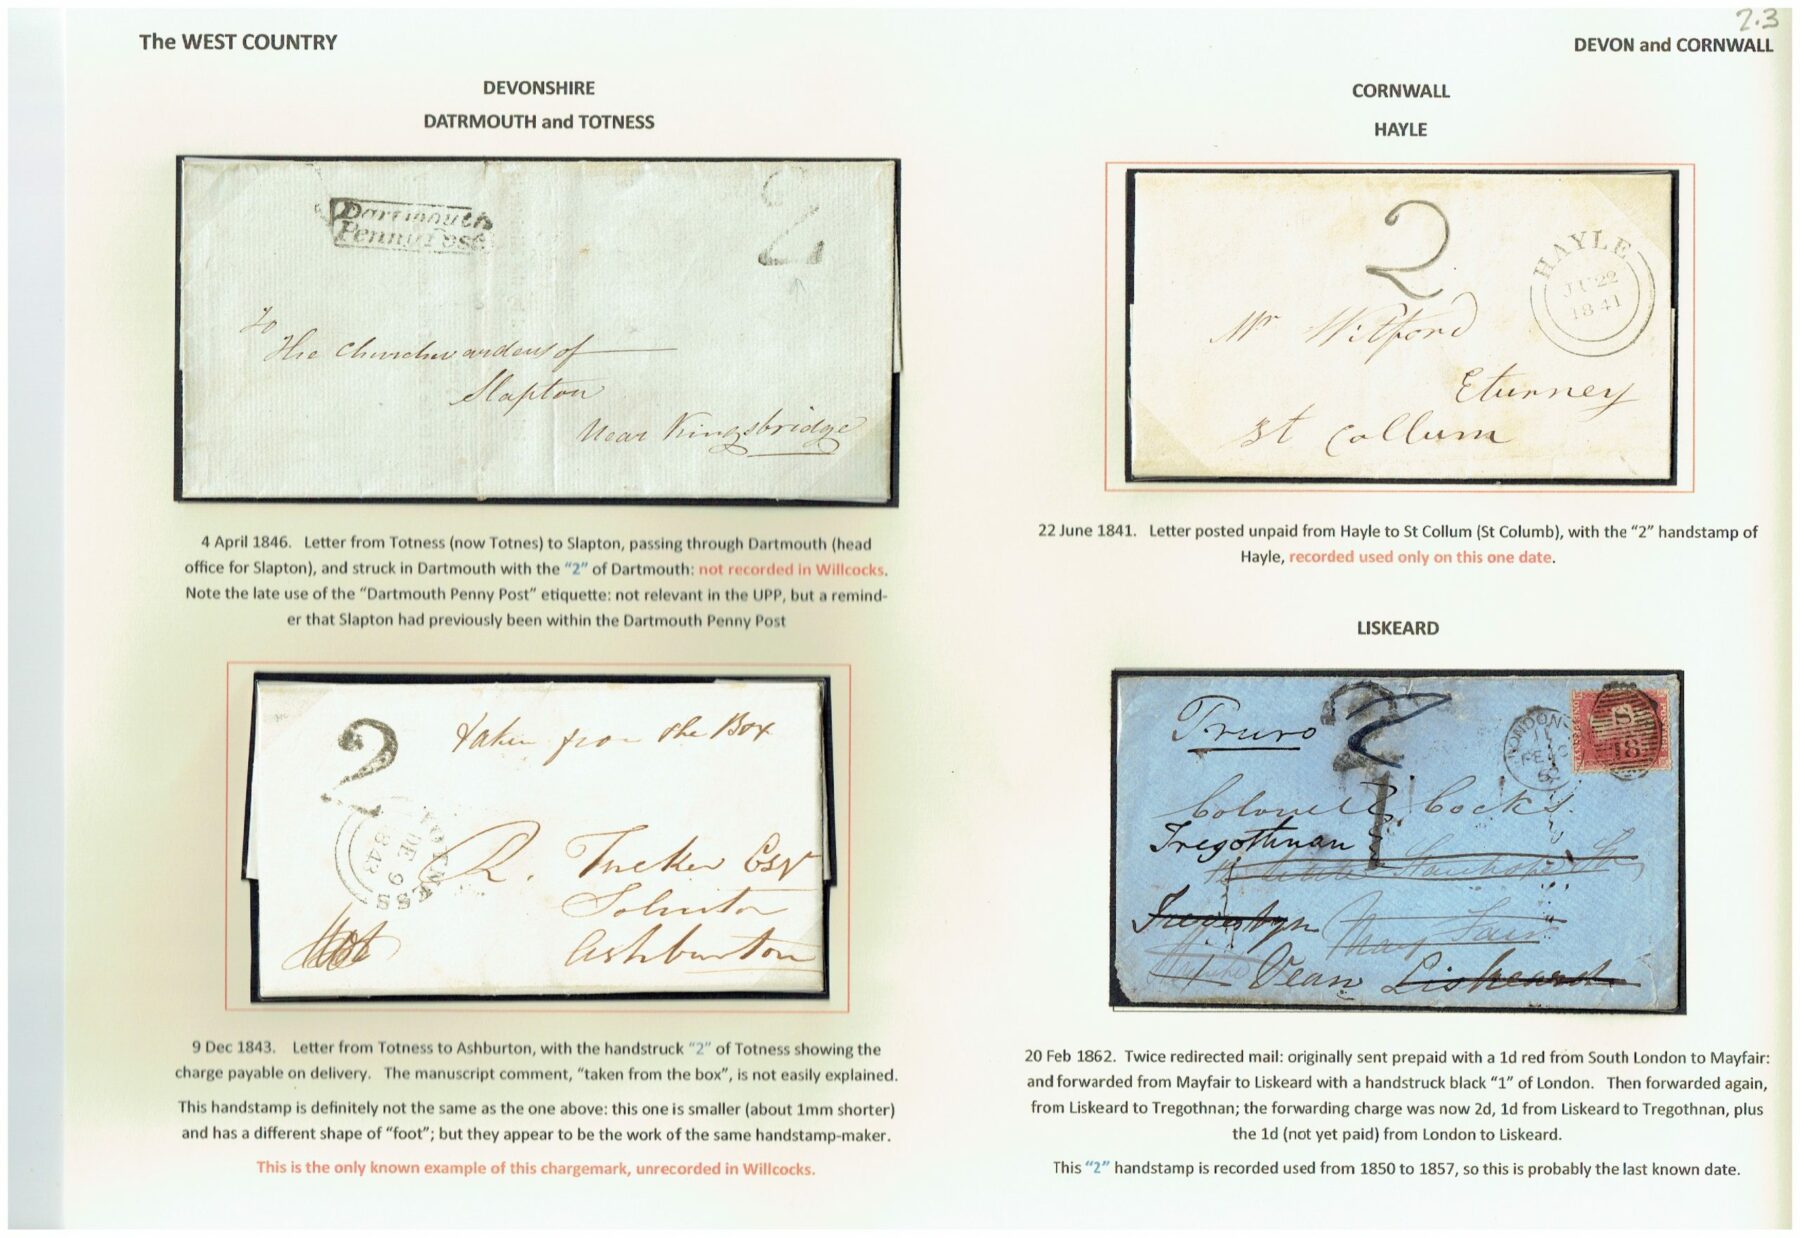 2.3
The WEST COUNTRY
DEVON and CORNWALL
DEVONSHIRE
DATRMOUTH and TOTNESS
Dartmouth
Penny Post
2
To
The Churchwardens of
Slapton
Near Kingsbridge
4 April 1846. Letter from Totness (now Totnes) to Slapton, passing through Dartmouth (head
office for Slapton), and struck in Dartmouth with the “2” of Dartmouth: not recorded in Willcocks.
Note the late use of the “Dartmouth Penny Post” etiquette: not relevant in the UPP, but a remind-
er that Slapton had previously been within the Dartmouth Penny Post
2
taken from the Box
TOTNESS
DE 9
1843
R. Tucker Esqr
Solicitor
Ashburton
9 Dec 1843. Letter from Totness to Ashburton, with the handstruck “2” of Totness showing the
charge payable on delivery. The manuscript comment, “taken from the box”, is not easily explained.
This handstamp is definitely not the same as the one above: this one is smaller (about 1mm shorter)
and has a different shape of “foot”; but they appear to be the work of the same handstamp-maker.
This is the only known example of this chargemark, unrecorded in Willcocks.
CORNWALL
HAYLE
2
HAYLE
JU 22
1841
Mr Witford
Eturney
St Collum
22 June 1841. Letter posted unpaid from Hayle to St Collum (St Columb), with the “2” handstamp of
Hayle, recorded used only on this one date.
LISKEARD
Truro
2
1
LONDON-S
S
18
Colonel Cocks
Tregothnan
Stanhope St
May Fair
St Vean Liskeard
20 Feb 1862. Twice redirected mail: originally sent prepaid with a 1d red from South London to Mayfair:
and forwarded from Mayfair to Liskeard with a handstruck black “1” of London. Then forwarded again,
from Liskeard to Tregothnan; the forwarding charge was now 2d, 1d from Liskeard to Tregothnan, plus
the 1d (not yet paid) from London to Liskeard.
This “2” handstamp is recorded used from 1850 to 1857, so this is probably the last known date.